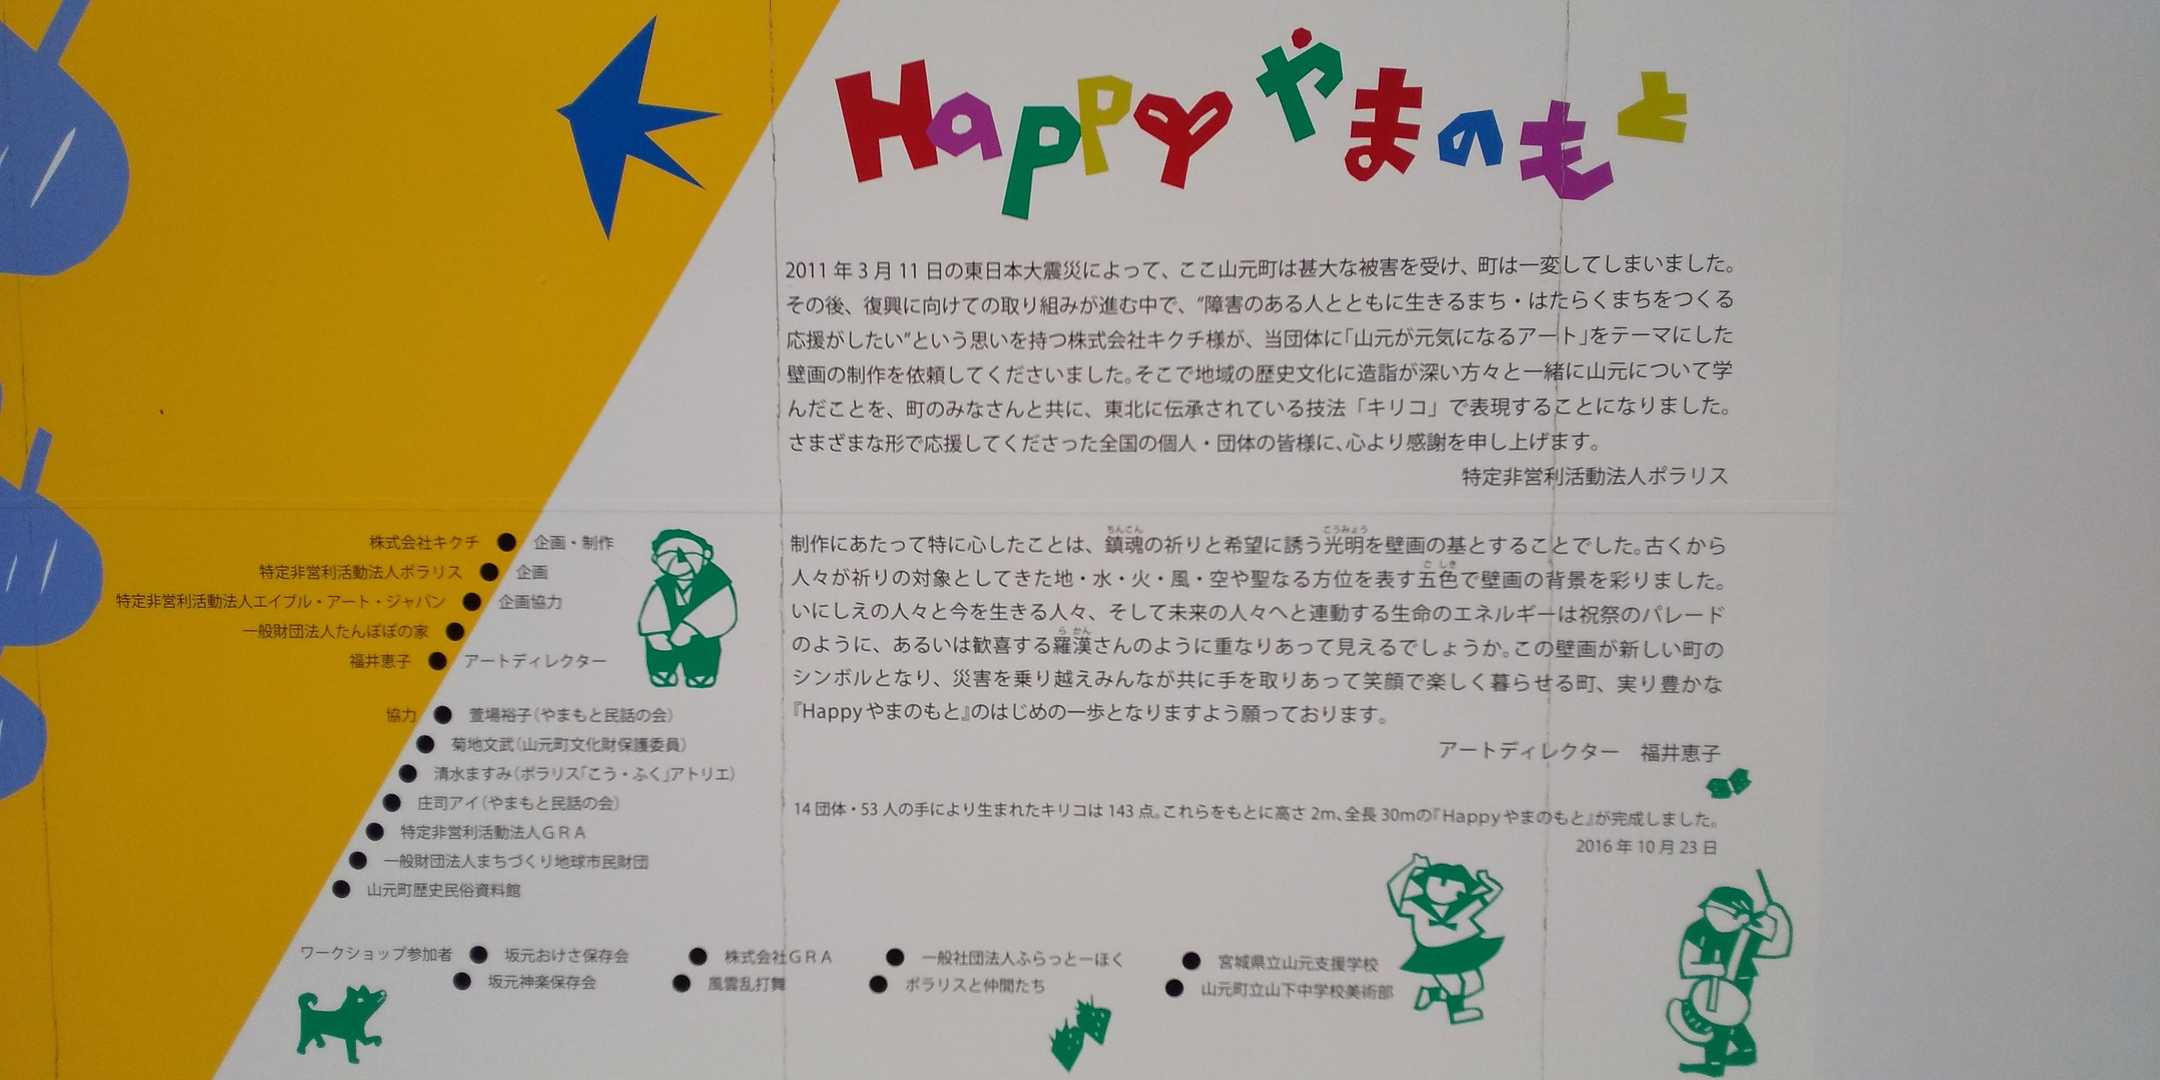 Happy やまのもと
2011年3月11日の東日本大震災によって、ここ山元町は甚大な被害を受け、町は一変してしまいました。
その後、復興に向けての取り組みが進む中で、“障害のある人とともに生きるまち・はたらくまちをつくる
応援がしたい”という思いを持つ株式会社キクチ様が、当団体に「山元が元気になるアート」をテーマにした
壁画の制作を依頼してくださいました。そこで地域の歴史文化に造詣が深い方々と一緒に山元について学
んだことを、町のみなさんと共に、東北に伝承されている技法「キリコ」で表現することになりました。
さまざまな形で応援してくださった全国の個人・団体の皆様に、心より感謝を申し上げます。
特定非営利活動法人ポラリス
ちんこん こうみょう
制作にあたって特に心したことは、鎮魂の祈りと希望に誘う光明を壁画の基とすることでした。古くから
ごしき
人々が祈りの対象としてきた地・水・火・風・空や聖なる方位を表す五色で壁画の背景を彩りました。
いにしえの人々と今を生きる人々、そして未来の人々へと連動する生命のエネルギーは祝祭のパレード
らかん
のように、あるいは歓喜する羅漢さんのように重なりあって見えるでしょうか。この壁画が新しい町の
シンボルとなり、災害を乗り越えみんなが共に手を取りあって笑顔で楽しく暮らせる町、実り豊かな
『Happyやまのもと』のはじめの一歩となりますよう願っております。
アートディレクター 福井恵子
14団体・53人の手により生まれたキリコは143点。これらをもとに高さ2m、全長30mの『Happyやまのもと』が完成しました。
2016年10月23日
株式会社キクチ ● 企画・制作
特定非営利活動法人ポラリス ● 企画
特定非営利活動法人エイブル・アート・ジャパン ● 企画協力
一般財団法人たんぽぽの家 ●
福井恵子 ● アートディレクター
協力 ● 萱場裕子（やまもと民話の会）
● 菊地文武（山元町文化財保護委員）
● 清水ますみ（ポラリス「こう・ふく」アトリエ）
● 庄司アイ（やまもと民話の会）
● 特定非営利活動法人GRA
● 一般財団法人まちづくり地球市民財団
● 山元町歴史民俗資料館
ワークショップ参加者 ● 坂元おけさ保存会 ● 株式会社GRA ● 一般社団法人ふらっとーほく ● 宮城県立山元支援学校
● 坂元神楽保存会 ● 風雲乱打舞 ● ポラリスと仲間たち ● 山元町立山下中学校美術部